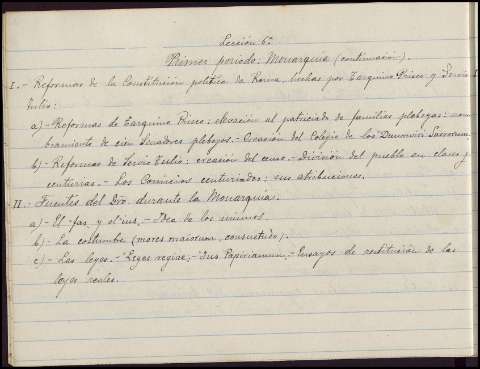 Lección 6ª
Primer período: Monarquía (continuación).
I.- Reformas de la Constitución política de Roma, hechas por Tarquino Prisco y Servio
Tulio:
a)- Reformas de Tarquino Prisco: elevación al patriciado de familias plebeyas: nom-
bramiento de cien Senadores plebeyos.- Creación del Colegio de los Duumviri Sacrorum.
b)- Reformas de Servio Tulio: creación del censo.- División del pueblo en clases y
centurias.- Los Comicios centuriados; sus atribuciones.
II.- Fuentes del Dro. durante la Monarquía.
a)- El fas y el ius.- Idea de los mismos.
b)- La costumbre (mores maiorum, consuetudo).
c)- Las leyes.- Leges regiae.- Ius Papirianum.- Ensayos de restitución de las
leyes reales.